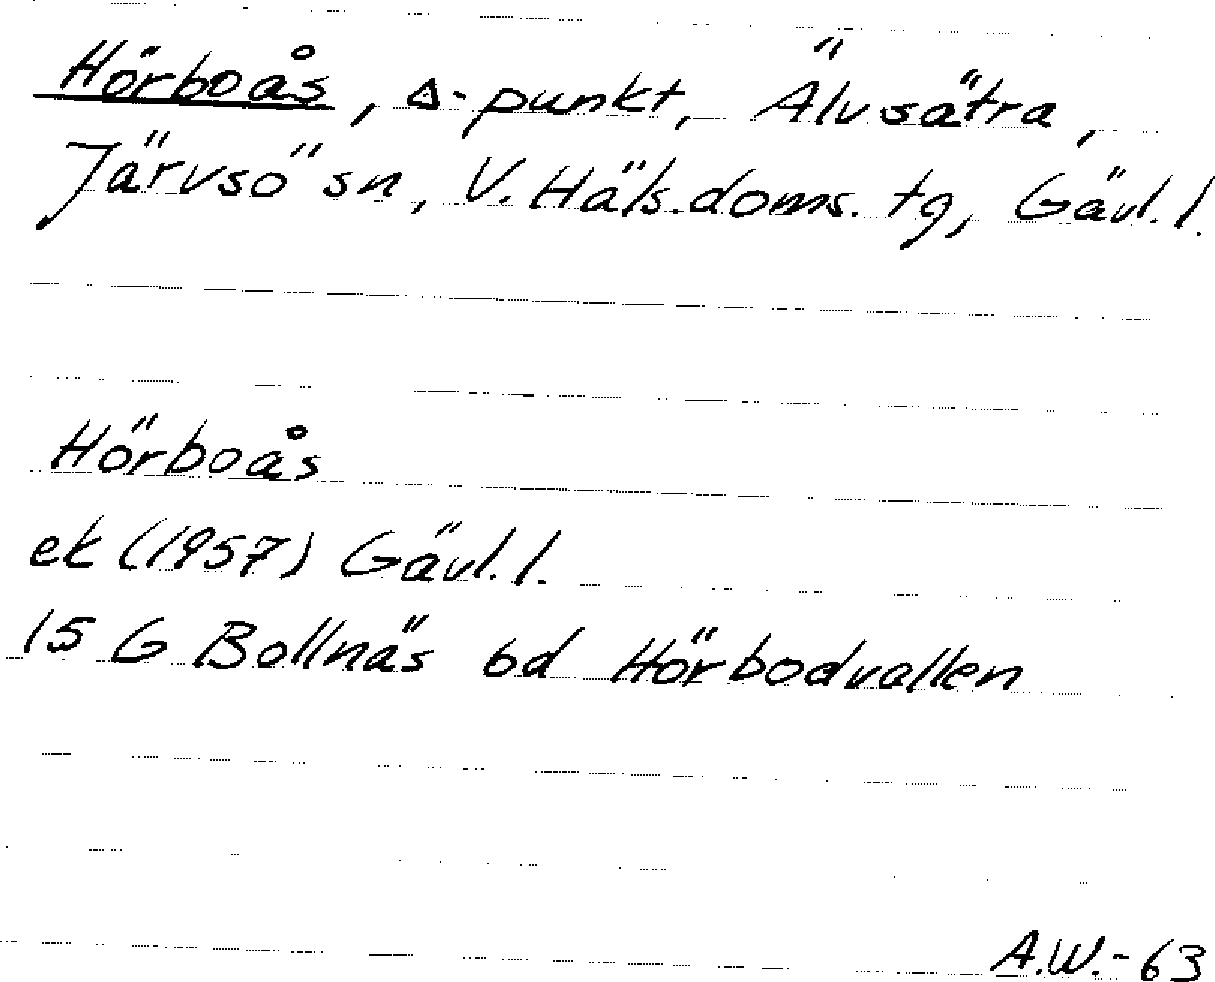 Hörboås, Δ-punkt, Älvsätra,
Järvsö sn, V. Häls.doms. tg, Gävl. l.
Hörboås
ek (1957) Gävl. l.
15 G Bollnäs 6d Hörbodvallen
A.W.-63